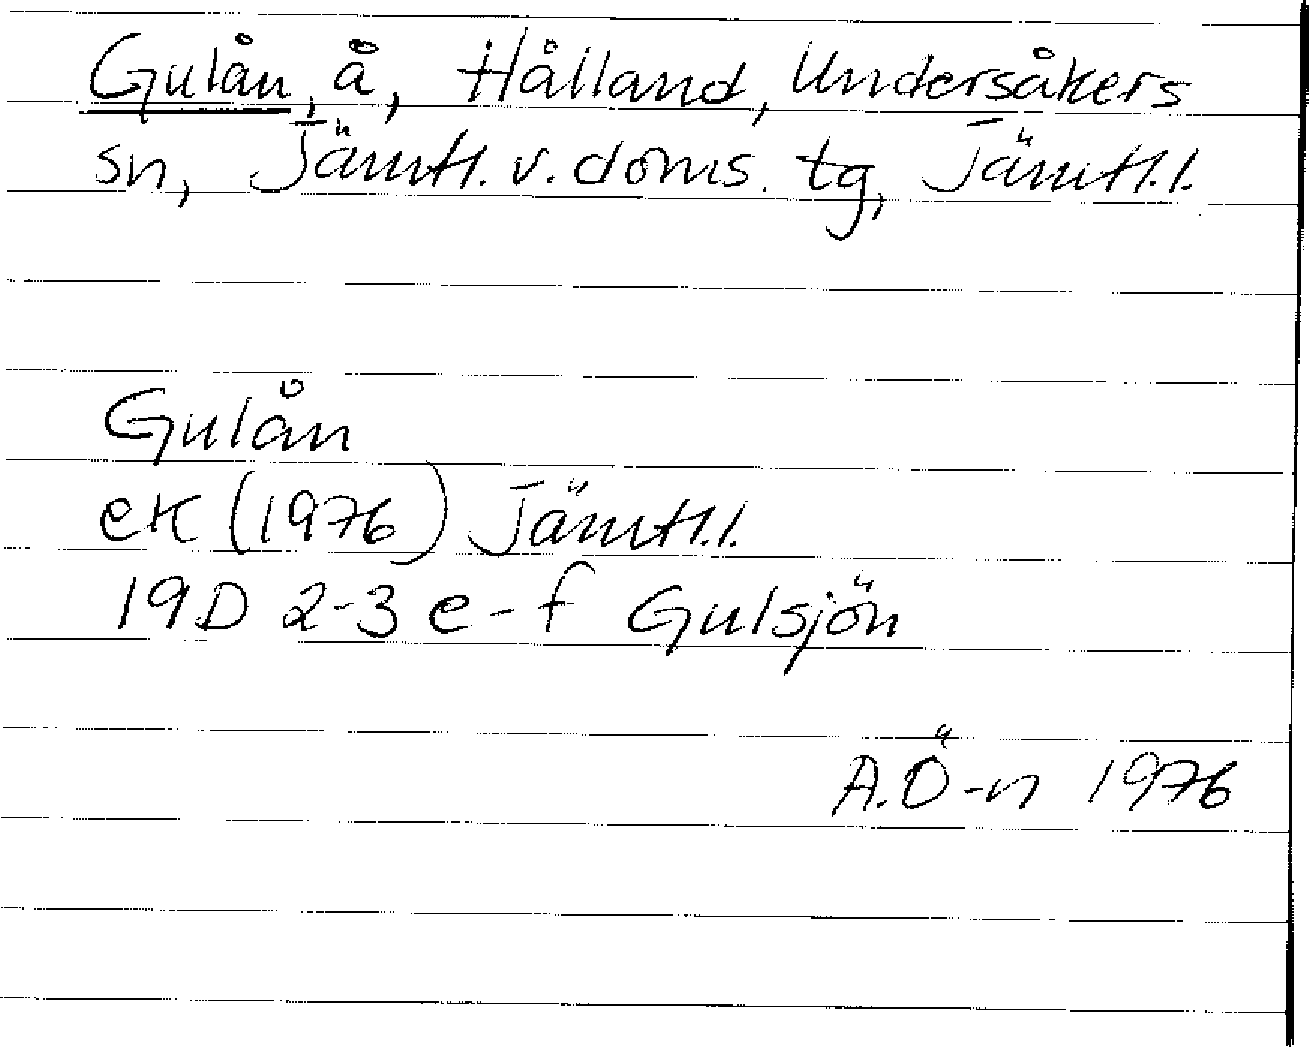 Gulån, å, Hålland, Undersåkers
sn, Jämtl. v. doms. tg, Jämtl. l.
Gulån
ek (1976) Jämtl. l.
19D 2-3 e-f Gulsjön
A.Ö-n 1976